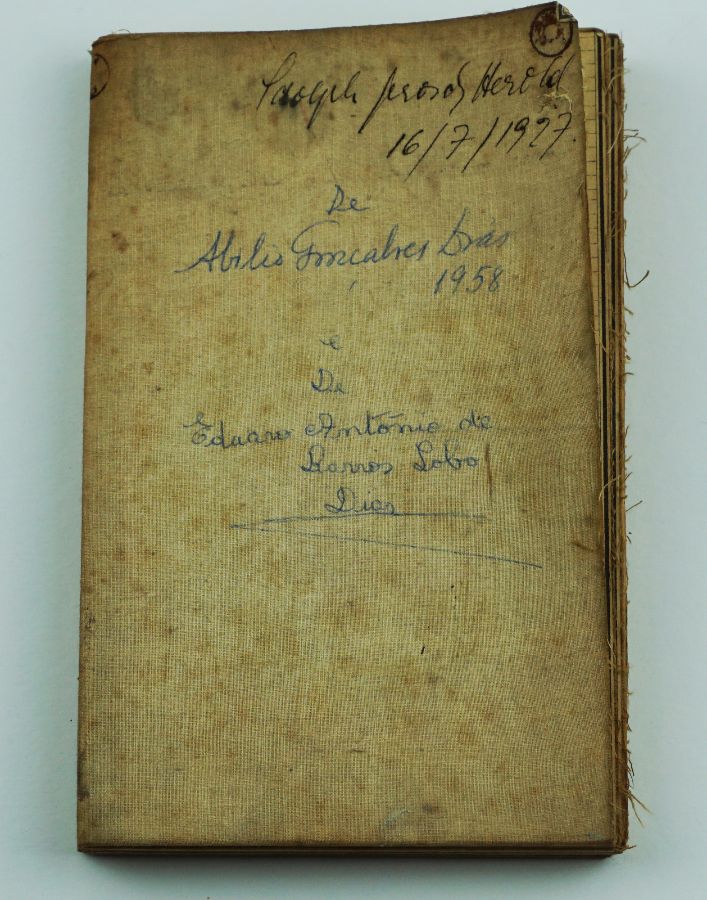 Herold
16/7/1927.
De
Abilio Gonçalves Dias
1958
e
De
Eduaro António de
Barros Lobo
Dias